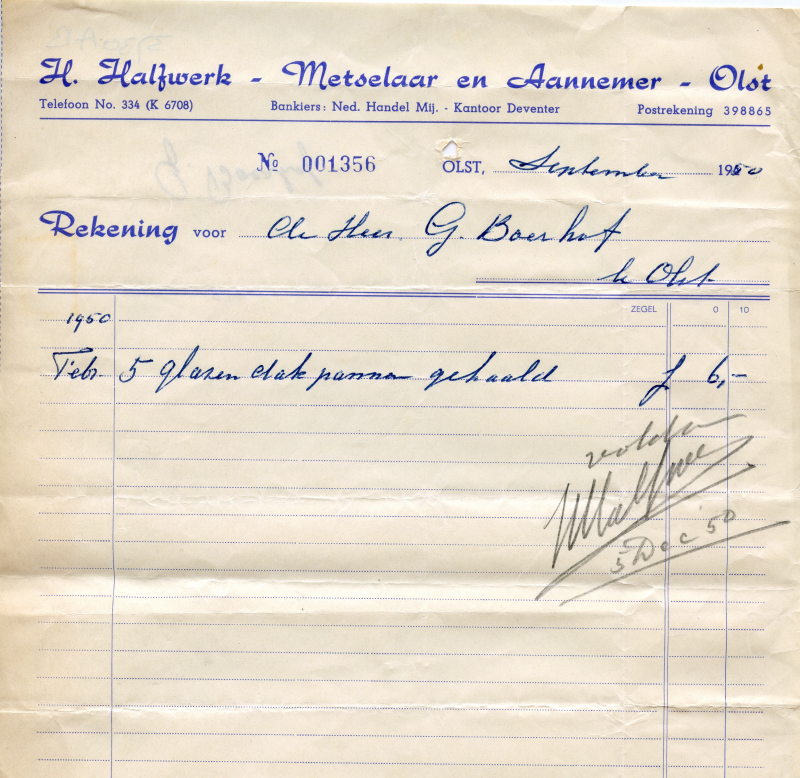 H. Halfwerk - Metselaar en Aannemer - Olst
Telefoon No. 334 (K 6708) Bankiers: Ned. Handel Mij. - Kantoor Deventer Postrekening 398865
№ 001356 OLST, September 1950
Rekening voor de Heer G. Boerhof
te Olst
ZEGEL 0 10
1950
Febr. 5 glazen dak pannen gehaald f 6,-
voldaan
HHalfwerk
5 Dec '50